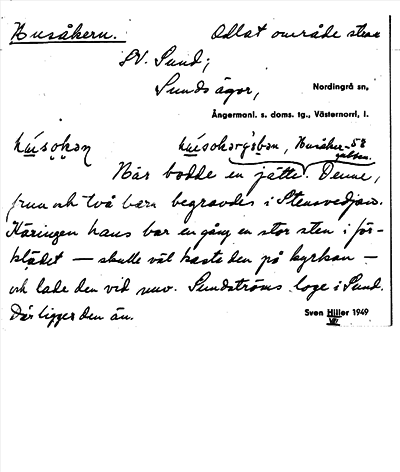 Husåkern. Odlat område sten
SV. Sund;
Sunds ägor,
Nordingrå sn,
Ångermanl. s. doms. tg., Västernorrl. l.
Husåker-
gubben.
Här bodde en jätte. Denne,
frun och två barn begravdes i Stensvedjan.
Käringen hans bar en gång en stor sten i för-
klädet — skulle väl kasta den på kyrkan —
och lade den vid nuv. Sundströms loge i Sund.
Där ligger den än.
Sven Hiller 1949
VII